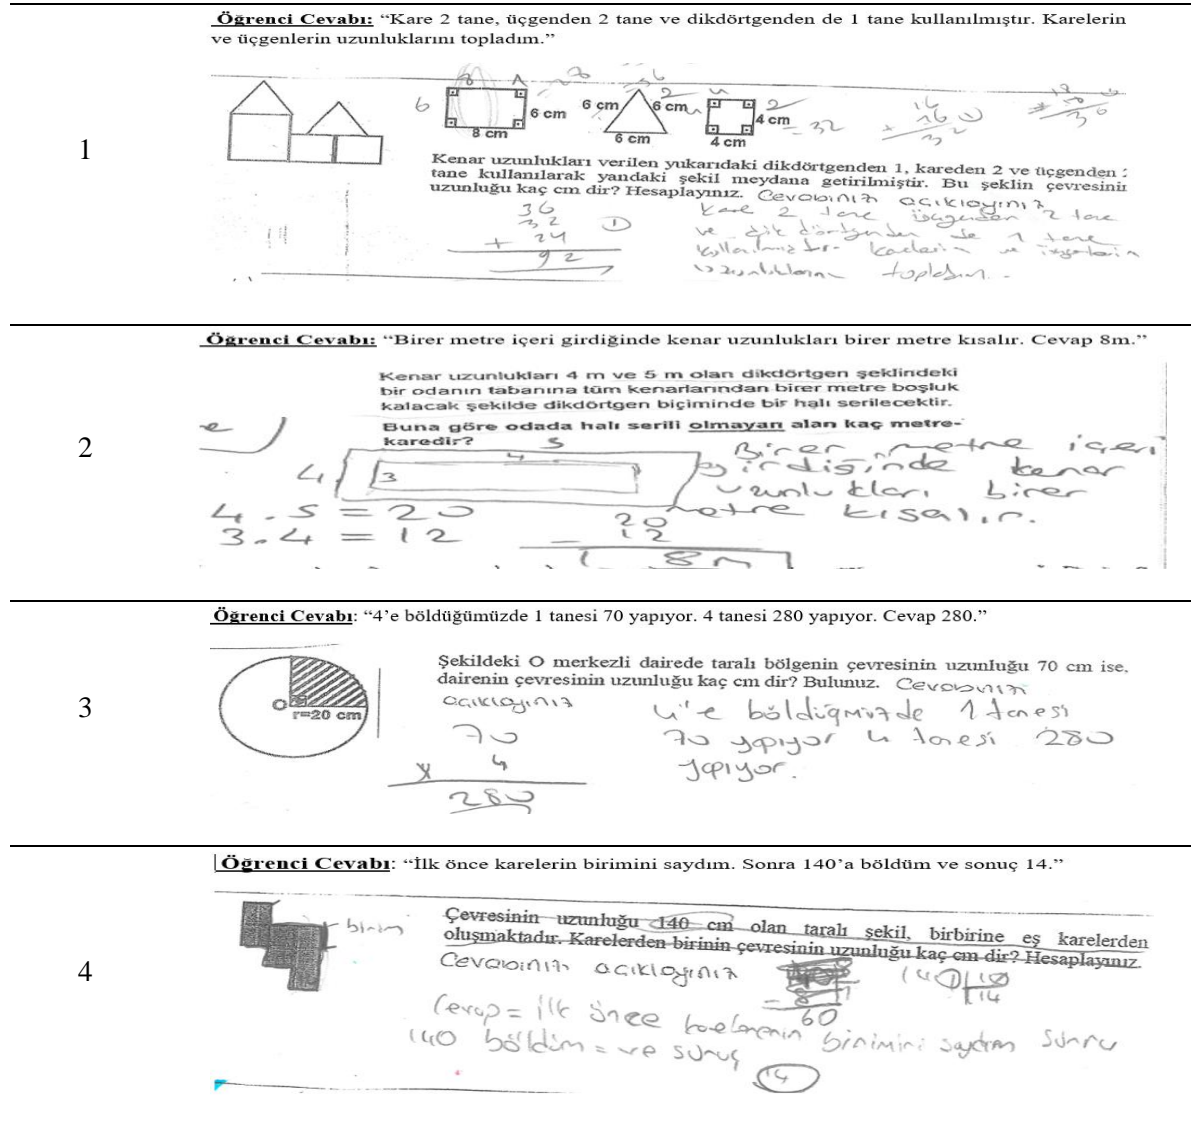 1
Öğrenci Cevabı: “Kare 2 tane, üçgenden 2 tane ve dikdörtgenden de 1 tane kullanılmıştır. Karelerin
ve üçgenlerin uzunluklarını topladım.”
8
6
6 cm
8 cm
6 cm
6 cm
6 cm
4 cm
4 cm
= 32
Kenar uzunlukları verilen yukarıdaki dikdörtgenden 1, kareden 2 ve üçgenden 2
tane kullanılarak yandaki şekil meydana getirilmiştir. Bu şeklin çevresinin
uzunluğu kaç cm dir? Hesaplayınız. Cevabınızı açıklayınız
36
32
+ 24
92
Kare 2 tane üçgenden 2 tane
ve dikdörtgenden de 1 tane
kullanılmıştır. Karelerin ve üçgenlerin
uzunluklarını topladım.
2
Öğrenci Cevabı: “Birer metre içeri girdiğinde kenar uzunlukları birer metre kısalır. Cevap 8m.”
Kenar uzunlukları 4 m ve 5 m olan dikdörtgen şeklindeki
bir odanın tabanına tüm kenarlarından birer metre boşluk
kalacak şekilde dikdörtgen biçiminde bir halı serilecektir.
Buna göre odada halı serili olmayan alan kaç metre-
karedir?
5
4
4
3
Birer metre içeri
girdiğinde kenar
uzunlukları birer
metre kısalır.
4.5 = 20
3.4 = 12
20
- 12
8m
3
Öğrenci Cevabı: “4’e böldüğümüzde 1 tanesi 70 yapıyor. 4 tanesi 280 yapıyor. Cevap 280.”
O
r=20 cm
Şekildeki O merkezli dairede taralı bölgenin çevresinin uzunluğu 70 cm ise,
dairenin çevresinin uzunluğu kaç cm dir? Bulunuz. Cevabınızı
açıklayınız
70
x 4
280
4'e böldüğmüzde 1 tanesi
70 yapıyor 4 tanesi 280
yapıyor.
4
Öğrenci Cevabı: “İlk önce karelerin birimini saydım. Sonra 140’a böldüm ve sonuç 14.”
birim
Çevresinin uzunluğu 140 cm olan taralı şekil, birbirine eş karelerden
oluşmaktadır. Karelerden birinin çevresinin uzunluğu kaç cm dir? Hesaplayınız.
Cevabınızı açıklayınız
60
140 10
14
Cevap = ilk önce karelerin birimini saydım sonra
140 böldüm = ve sonuç
14